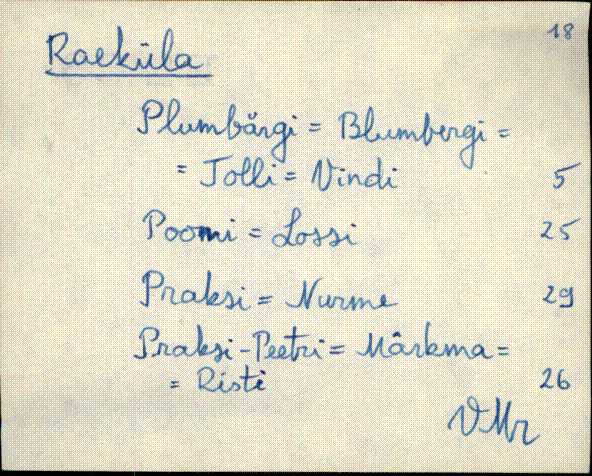 18
Raeküla
Plumbärgi = Blumbergi =
= Tolli = Vindi 5
Poomi = Lossi 25
Praksi = Nurme 29
Praksi-Peetri = Märkma =
= Risti 26
VMr